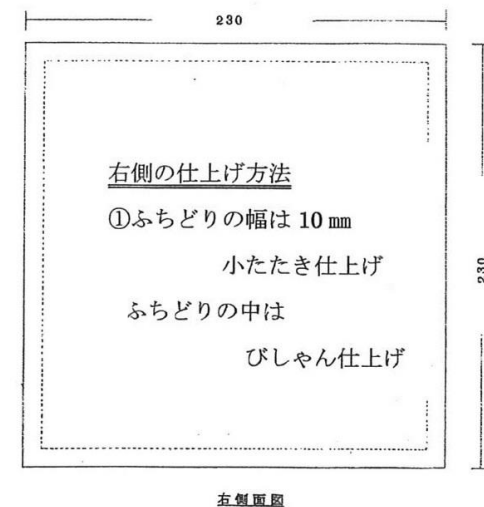 230
右側の仕上げ方法
①ふちどりの幅は 10 ㎜
小たたき仕上げ
ふちどりの中は
びしゃん仕上げ
230
右側面図